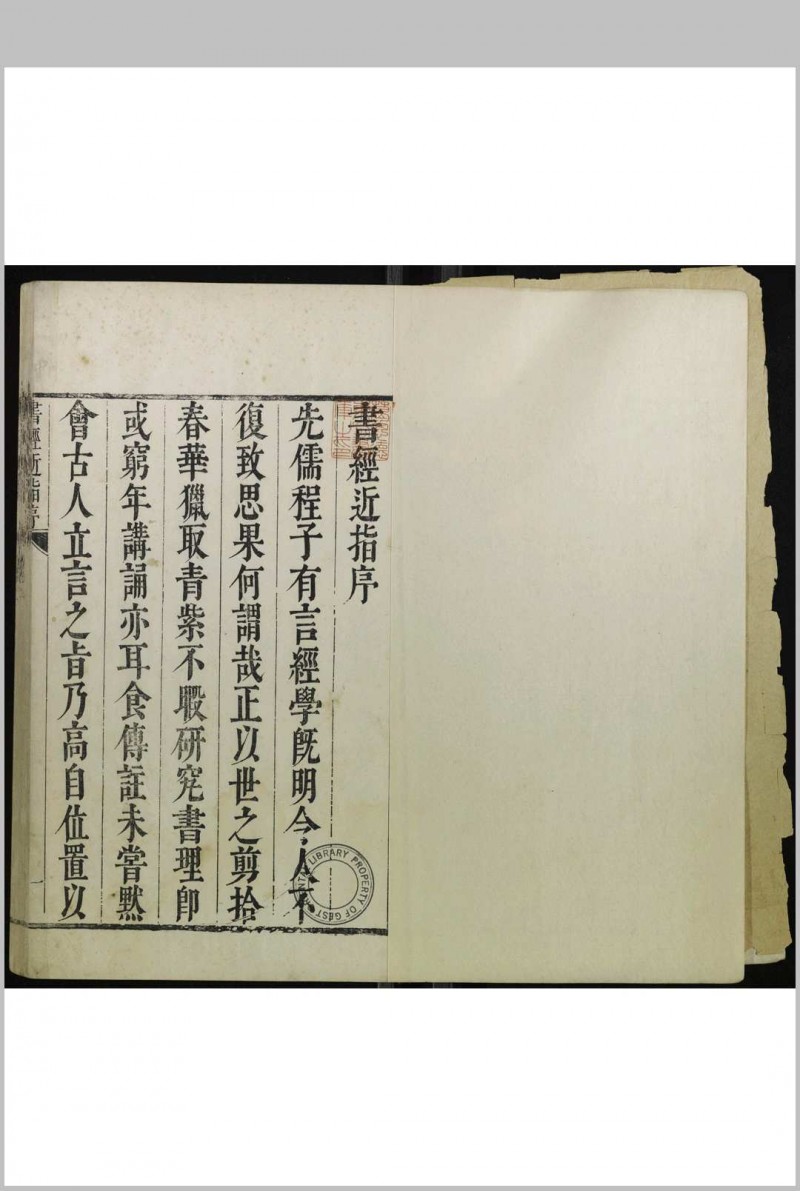 書經近指序
先儒程子有言經學旣明今人不
復致思果何謂哉正以世之剪拾
春華獵取青紫不暇研究書理卽
或窮年講誦亦耳食傳註未嘗黙
會古人立言之旨乃高自位置以
書經近指序
一
LIBRARY PROPERTY OF GEST